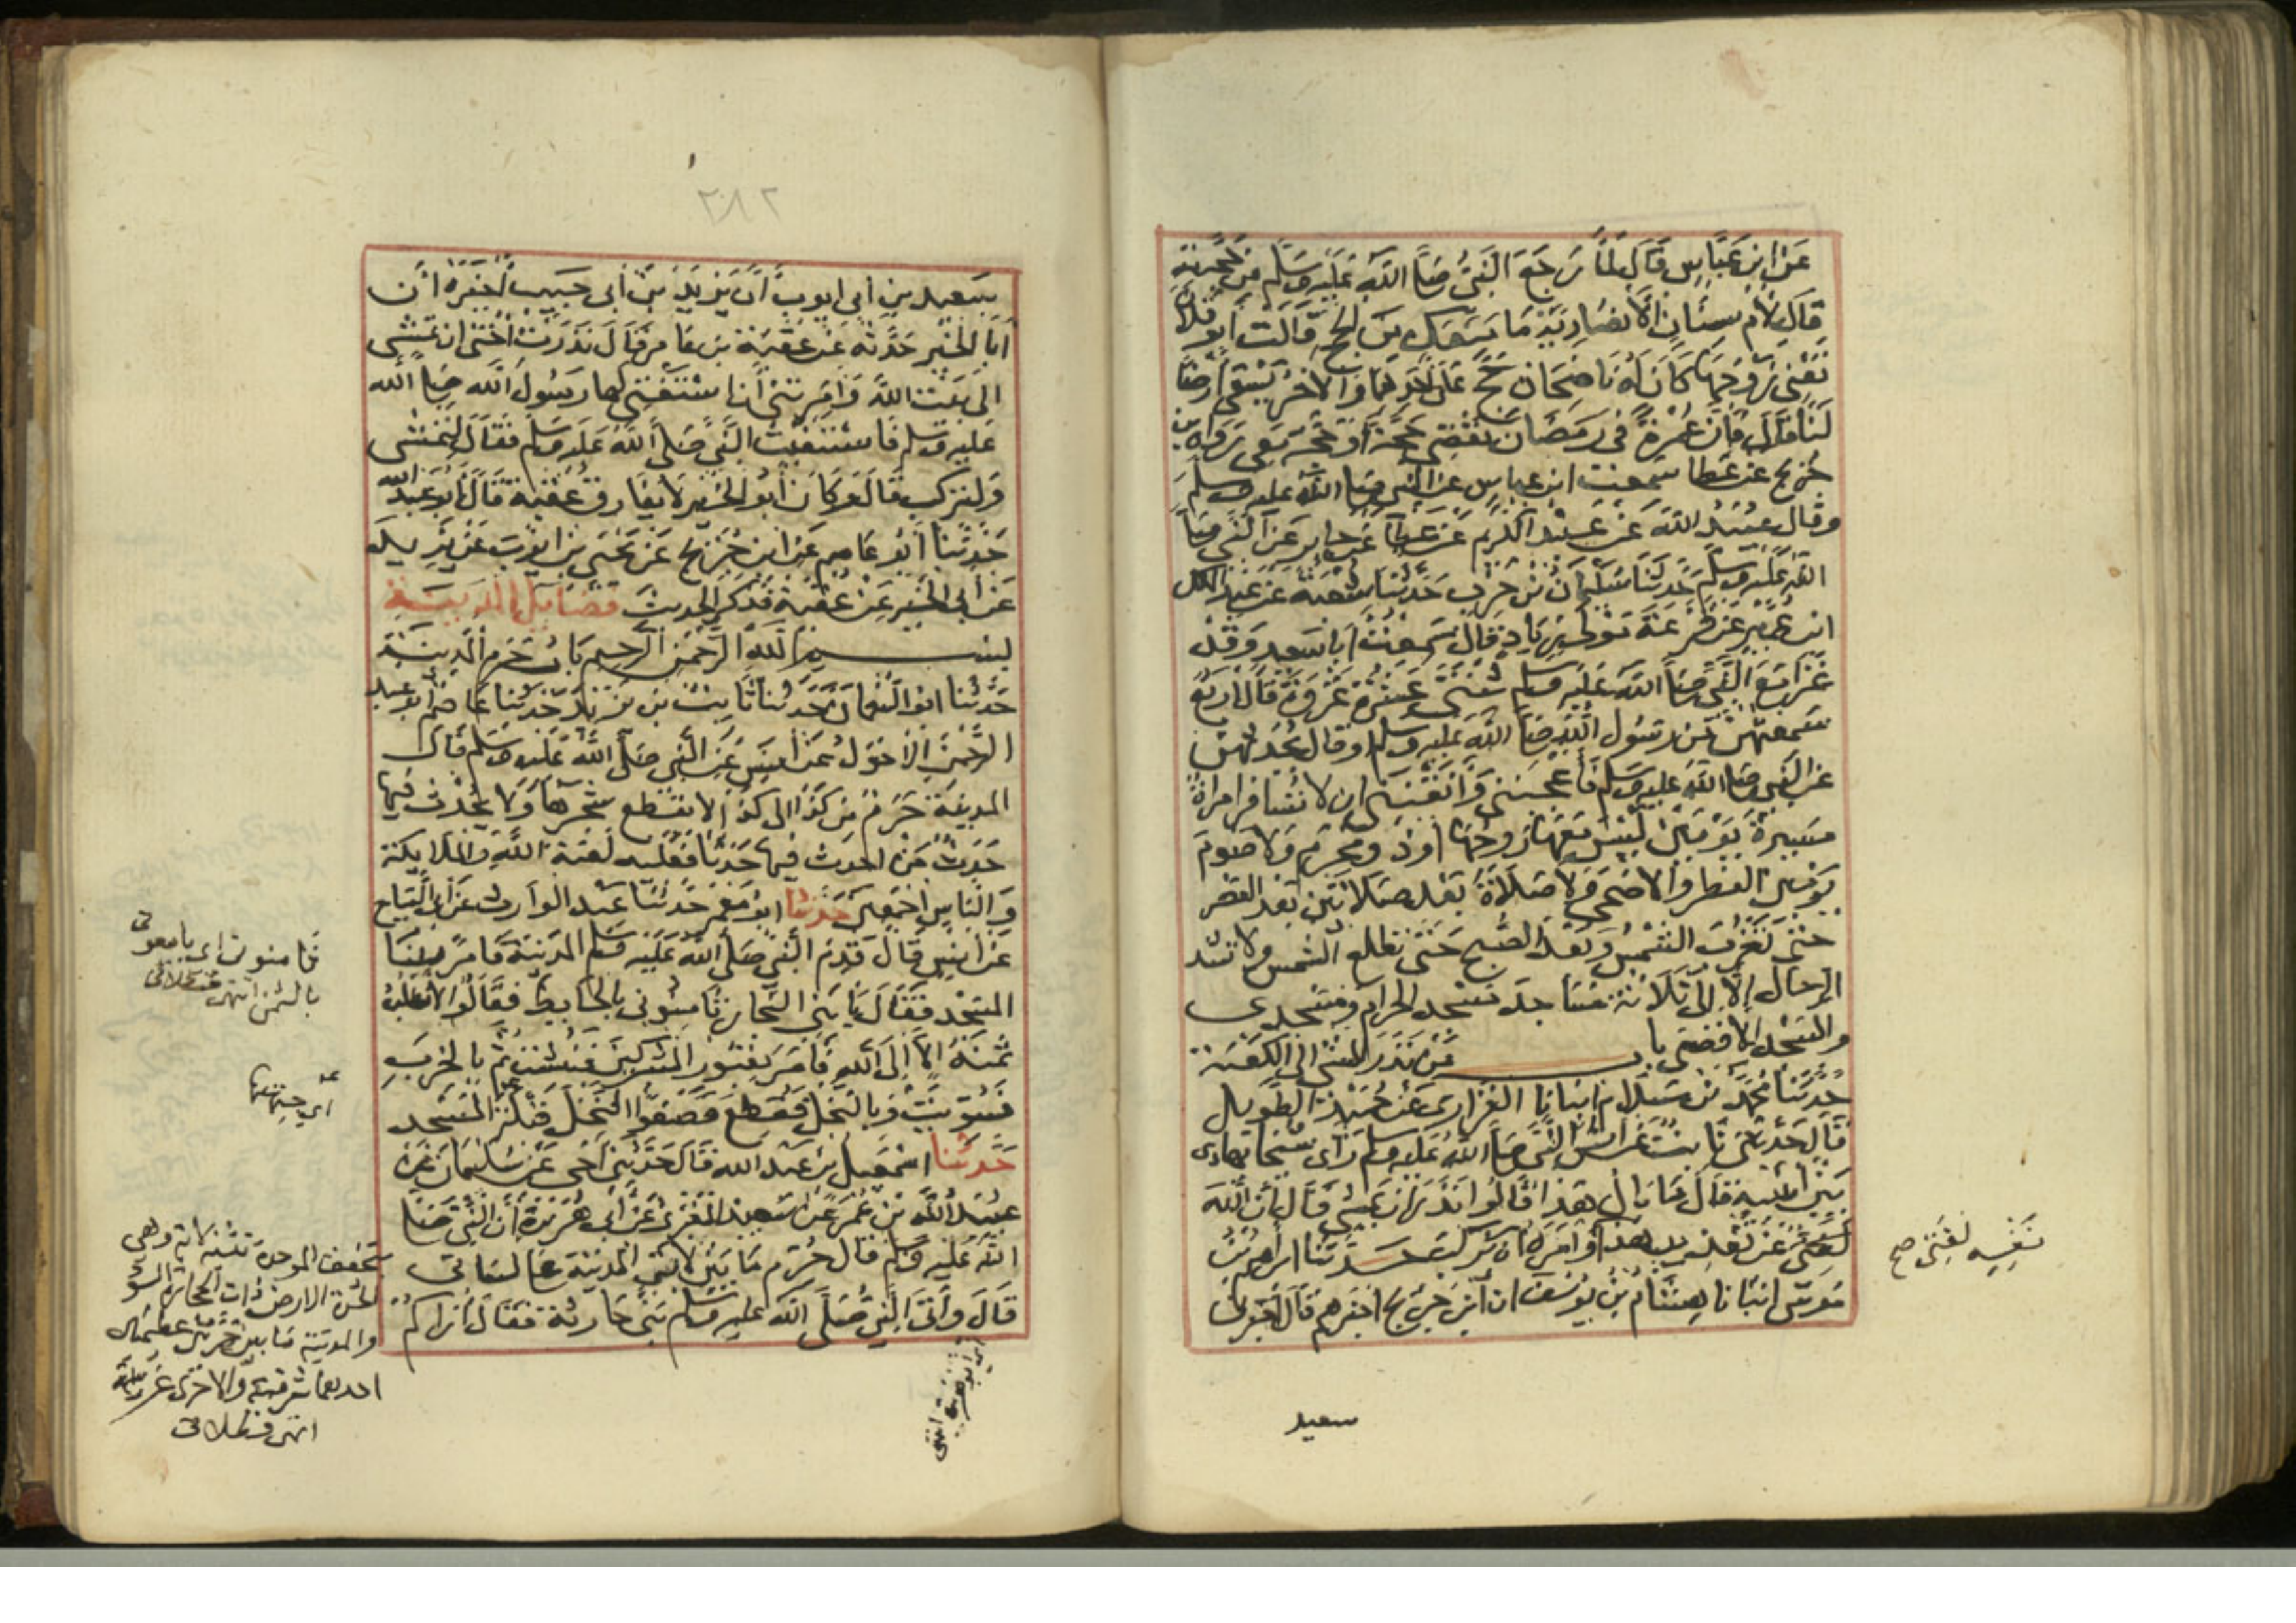 عن ابن عباس قال لما رجع النبي صلى الله عليه وسلم من حجته
قال لام سنان الانصارية ما منعك من الحج قالت ابو فلان
تعني زوجها كان له ناضحان حج على احدهما والاخر يسقي ارضا
لنا قال فان عمرة في رمضان تقضي حجة او حجة معي رواه ابن
جريج عن عطا سمعت ابن عباس عن النبي صلى الله عليه وسلم
وقال عبيد الله عن عبد الكريم عن عطا عن جابر عن النبي صلى
الله عليه وسلم حدثنا سليمان بن حرب حدثنا شعبة عن عبد الملك
ابن عمير عن قزعة مولى زياد قال سمعت ابا سعيد وقد
غزا مع النبي صلى الله عليه وسلم ثنتي عشرة غزوة قال اربع
سمعتهن من رسول الله صلى الله عليه وسلم او قال يحدثهن
عن النبي صلى الله عليه وسلم فاعجبنني وانقنني ان لا تسافر امراة
مسيرة يومين ليس معها زوجها او ذو محرم ولا صوم
يومين الفطر والاضحى ولا صلاة بعد صلاتين بعد العصر
حتى تغرب الشمس وبعد الصبح حتى تطلع الشمس ولا تشد
الرحال الا الى ثلاثة مساجد مسجد الحرام ومسجدي
والمسجد الاقصى باب من نذر المشي الى الكعبة
حدثنا محمد بن سلام انبانا الفزاري عن حميد الطويل
قال حدثني ثابت عن انس ان النبي صلى الله عليه وسلم راى شيخا يهادى
بين ابنيه قال ما بال هذا قالوا نذر ان يمشي قال ان الله
لغني عن تعذيب هذا وامره ان يركب حدثنا ابراهيم بن
موسى انبانا هشام بن يوسف ان ابن جريج اخبرهم قال اخبرني
نفسه لغني صح
سعيد
٢٨٢
سعيد بن ابي ايوب ان يزيد بن ابي حبيب اخبره ان
ابا الخير حدثه عن عقبة بن عامر قال نذرت اختي ان تمشي
الى بيت الله وامرتني ان استفتي لها رسول الله صلى الله
عليه وسلم فاستفتيت النبي صلى الله عليه وسلم فقال لتمشي
ولتركب قال وكان ابو الخير لا يفارق عقبة قال ابو عبد الله
حدثنا ابو عاصم عن ابن جريج عن يحيى بن ايوب عن يزيد
عن ابي الخير عن عقبة فذكر الحديث فضايل المدينة
بسم الله الرحمن الرحيم باب حرم المدينة
حدثنا ابو النعمان حدثنا ثابت بن يزيد حدثنا عاصم ابو عبد
الرحمن الاحول عن انس عن النبي صلى الله عليه وسلم قال
المدينة حرم من كذا الى كذا لا يقطع شجرها ولا يحدث فيها
حدث من احدث فيها حدثا فعليه لعنة الله والملايكة
والناس اجمعين حدثنا ابو معمر حدثنا عبد الوارث عن ابي التياح
عن انس قال قدم النبي صلى الله عليه وسلم المدينة فامر ببنا
المسجد فقال يا بني النجار ثامنوني بالحايط فقالوا لا نطلب
ثمنه الا الى الله فامر بقبور المشركين فنبشت ثم بالخرب
فسويت وبالنخل فقطع فصفوا النخل قبلة المسجد
حدثنا اسمعيل بن عبد الله قال حدثني اخي عن سليمان عن
عبيد الله بن عمر عن سعيد المقبري عن ابي هريرة ان النبي صلى
الله عليه وسلم قال حرم ما بين لابتي المدينة على لساني
قال واتى النبي صلى الله عليه وسلم بني حارثة فقال اراكم
ثامنوني اى بايعوني
بالثمن انتهى قسطلاني
اي جهتها
بتخفيف الموحدة تثنية لابة وهي
الحرة الارض ذات الحجارة السود
والمدينة ما بين حرتين عظيمتين
احديهما شرقية والاخرى غربية
انتهى قسطلاني
اي ابو هريرة انتهى